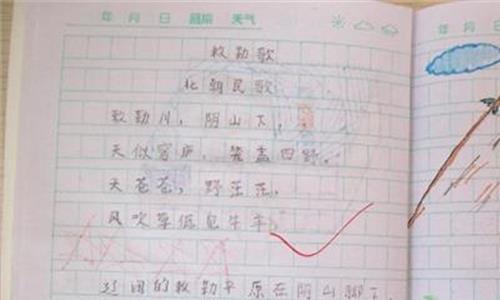 年 月 日 星期 天气
敕勒歌
北朝民歌
敕勒川，阴山下，
天似穹庐，笼盖四野。
天苍苍，野茫茫，
风吹草低见牛羊。
辽阔的敕勒平原在阴山脚下，
年 月